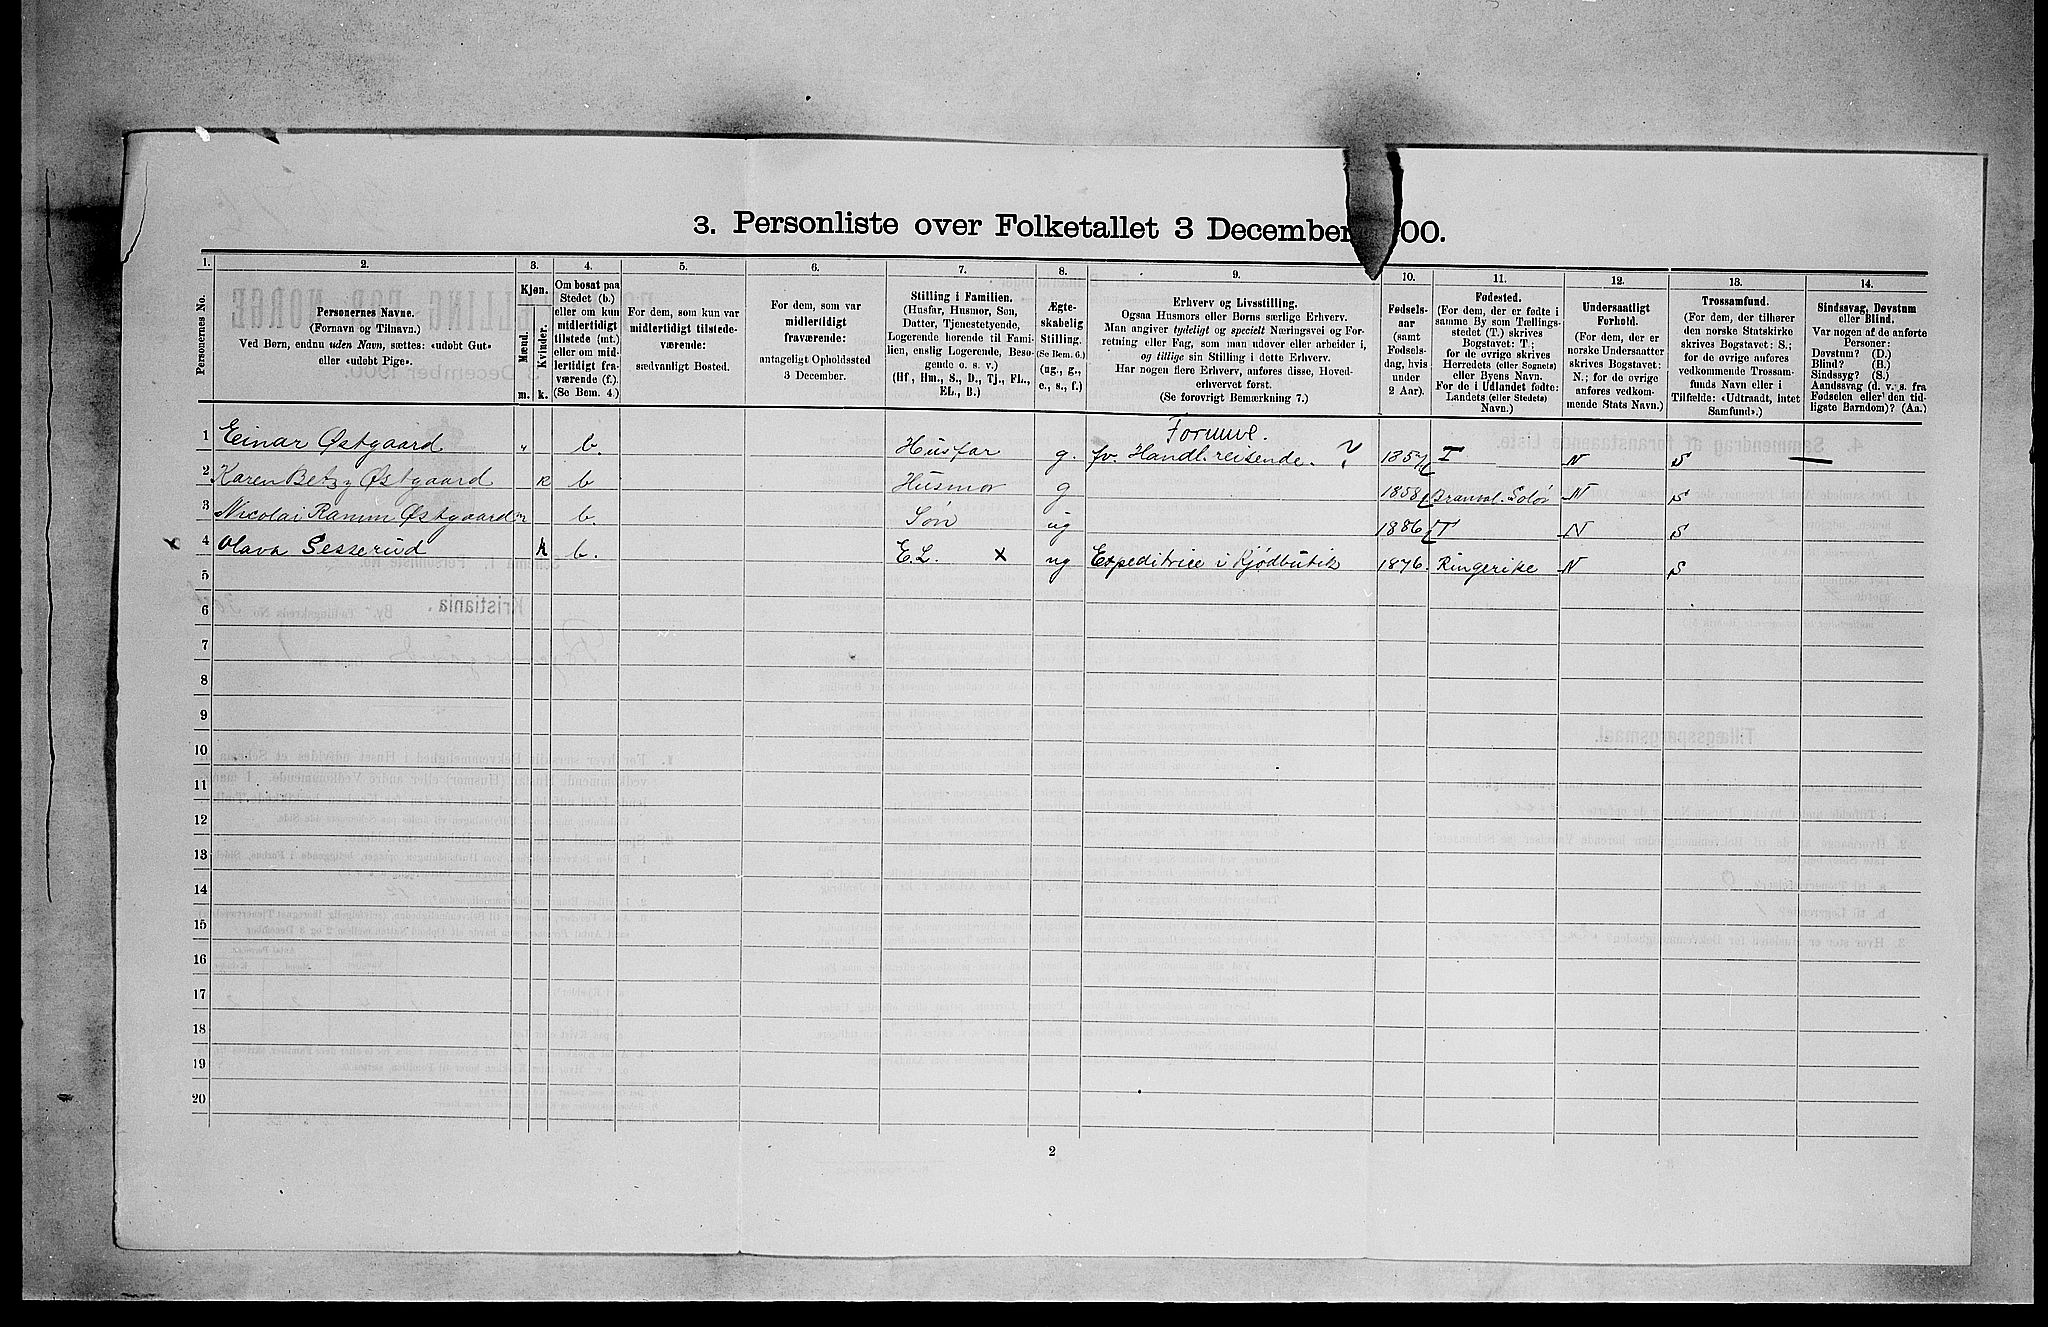 3. Personliste over Folketallet 3 December 00.
1. 2. 3. 4. 5. 6. 7. 8. 9. 10. 11. 12. 13. 14.
Personernes No.
Personernes Navne.
(Fornavn og Tilnavn.)
Ved Børn, endnu uden Navn, sættes: «udøbt Gut»
eller «udøbt Pige».
Kjøn.
Mænd.
Kvinder.
m. k.
Om bosat paa
Stedet (b.)
eller om kun
midlertidigt
tilstede (mt.)
eller om mid-
lertidigt fra-
værende (f.)
(Se Bem. 4.)
For dem, som kun var
midlertidigt tilstede-
værende:
sædvanligt Bosted.
For dem, som var
midlertidigt
fraværende:
antageligt Opholdssted
3 December.
Stilling i Familien.
(Husfar, Husmor, Søn,
Datter, Tjenestetyende,
Logerende hørende til Fami-
lien, enslig Logerende, Besø-
gende o. s. v.)
(Hf., Hm., S., D., Tj., FL.,
EL., B.)
Ægte-
skabelig
Stilling.
(Se Bem. 6.)
(ug., g.,
e., s., f.)
Erhverv og Livsstilling.
Ogsaa Husmors eller Børns særlige Erhverv.
Man angiver tydeligt og specielt Næringsvei og For-
retning eller Fag, som man udøver eller arbeider i,
og tillige sin Stilling i dette Erhverv.
Har nogen flere Erhverv, anføres disse, Hoved-
erhvervet først.
(Se forøvrigt Bemærkning 7.)
Fødsels-
aar
(samt
Fødsels-
dag, hvis
under
2 Aar).
Fødested.
(For dem, der er fødte i
samme By som Tællings-
stedet (T.) skrives
Bogstavet: T;
for de øvrige skrives
Herredets (eller Sognets)
eller Byens Navn.
For de i Udlandet fødte:
Landets (eller Stedets)
Navn.)
Undersaatligt
Forhold.
(For dem, der er
norske Undersaatter
skrives Bogstavet:
N.; for de øvrige
anføres vedkom-
mende Stats Navn.)
Trossamfund.
(For dem, der tilhører
den norske Statskirke
skrives Bogstavet: S.;
for de øvrige anføres
vedkommende Trossam-
funds Navn eller i
Tilfælde: «Udtraadt, intet
Samfund».)
Sindssvag, Døvstum
eller Blind.
Var nogen af de anførte
Personer:
Døvstum? (D.)
Blind? (B.)
Sindssyg? (S.)
Aandssvag (d. v. s. fra
Fødselen eller den tid-
ligste Barndom)? (Aa.)
Formue.
1 Einar Østgaard b. Husfar g. fv. Handl. reisende. ? 1857 T N S
2 Karen Betzy Østgaard k b Husmor g 1858 Branvol. Solør N S
3 Nicolai Ramm Østgaard m b. Søn ug 1886 T N S
4 Olava Sesserud k b. E.L. x ug Expeditrice i Kjødbutik 1876. Ringerike N S
5
6
7
8
9
10
11
12
13
14
15
16
17
18
19
20
2